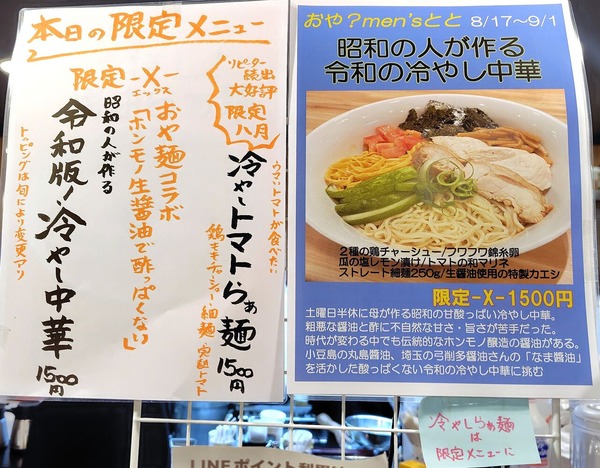 本日の限定メニュー
リピーター
続出
大好評
限定
八月
冷やしトマトらぁ麺
1500円
ウマいトマトが食べたい
細麺・完熟トマト
限定-X-
エックス
おや麺コラボ
「ホンモノ生醤油で酢っぱくない」
昭和の人が作る
令和版!冷やし中華
1500円
トッピングは旬により変更アリ
おや?men'sとと 8/17~9/1
昭和の人が作る
令和の冷やし中華
2種の鶏チャーシュー/フワフワ錦糸卵
瓜の塩レモン漬け/トマトの和マリネ
ストレート細麺250g/生醤油使用の特製カエシ
限定-X-1500円
土曜日半休に母が作る昭和の甘酸っぱい冷やし中華。
粗悪な醤油と酢に不自然な甘さ・旨さが苦手だった。
時代が変わる中でも伝統的なホンモノ醸造の醤油がある。
小豆島の丸島醤油、埼玉の弓削多醤油さんの「なま醤油」
を活かした酸っぱくない令和の冷やし中華に挑む
冷やしらぁ麺
は
限定メニューに
LINEポイント利用